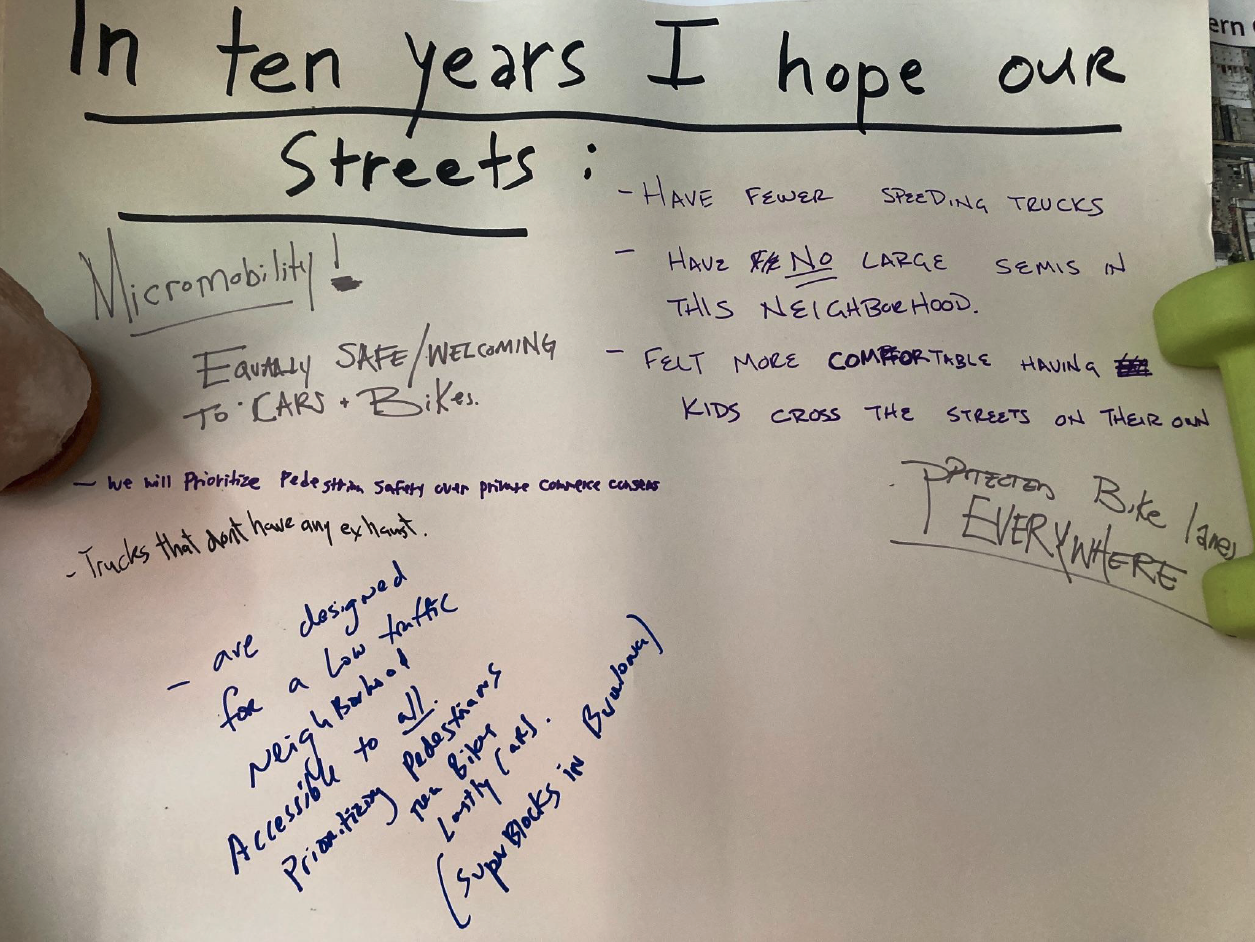 In ten years I hope our
Streets:
- HAVE FEWER SPEEDING TRUCKS
- HAVE NO LARGE SEMIS IN
THIS NEIGHBORHOOD.
- FELT MORE COMFORTABLE HAVING
KIDS CROSS THE STREETS ON THEIR OWN
Micromobility!
EQUALLY SAFE/WELCOMING
TO CARS + Bikes.
- We will Prioritize Pedestrian Safety over private commerce
- Trucks that dont have any exhaust.
PROTECTED Bike lanes
EVERYWHERE
- are designed
for a Low traffic
NeighBorhood
Accessible to all.
Prioritizing Pedestrians
Then Bikes
Lastly Cars.
(SuperBlocks in Barcelona)
ern